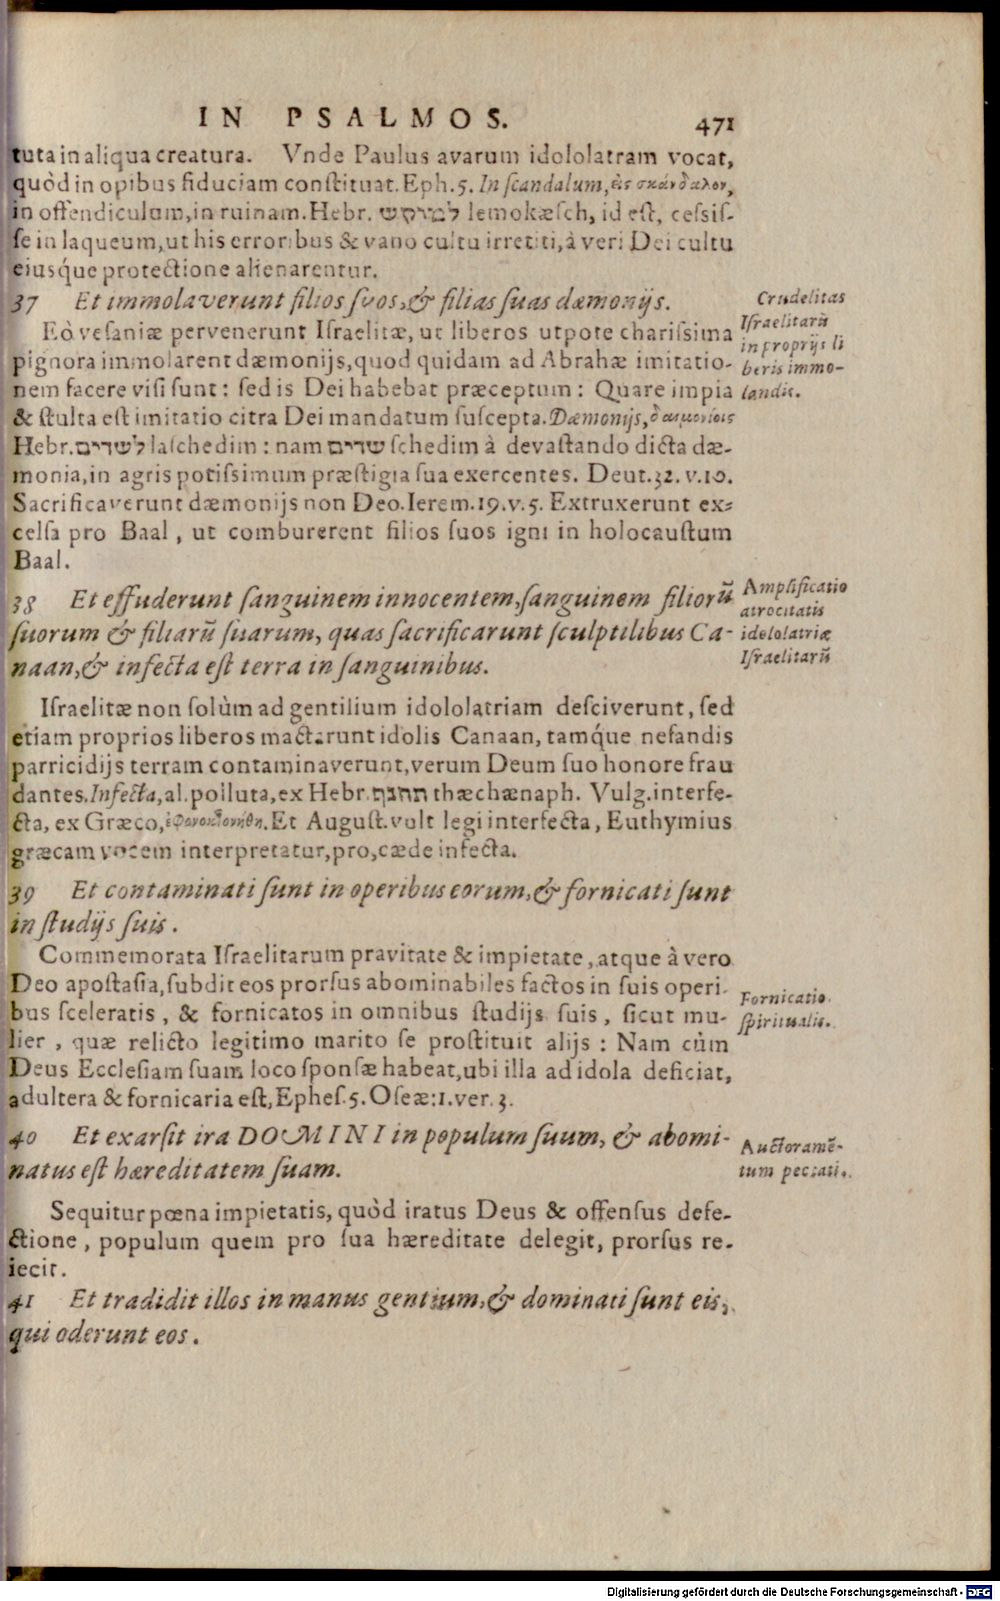 IN PSALMOS. 471
tuta in aliqua creatura. Vnde Paulus avarum idololatram vocat,
quòd in opibus fiduciam constituat. Eph. 5. In scandalum, εἰς σκάνδαλον,
in offendiculum, in ruinam. Hebr. למוקש lemokæsch, id est, cessis-
se in laqueum, ut his erroribus & vano cultu irretiti, à veri Dei cultu
eiusq́ue protectione alienarentur.
37 Et immolaverunt filios suos, & filias suas dæmonijs.
Crudelitas
Israelitarū
in proprijs li
beris immo-
landis.
Eò vesaniæ pervenerunt Israelitæ, ut liberos utpote charissima
pignora immolarent dæmonijs, quod quidam ad Abrahæ imitatio-
nem facere visi sunt: sed is Dei habebat præceptum: Quare impia
& stulta est imitatio citra Dei mandatum suscepta. Dæmonijs, δαιμονίοις
Hebr. לשדים laschedim: nam שדים schedim à devastando dicta dæ-
monia, in agris potissimum præstigia sua exercentes. Deut. 32. v. 10.
Sacrificaverunt dæmonijs non Deo. Ierem. 19. v. 5. Extruxerunt ex-
celsa pro Baal, ut comburerent filios suos igni in holocaustum
Baal.
38 Et effuderunt sanguinem innocentem, sanguinem filiorū
suorum & filiarū suarum, quas sacrificarunt sculptilibus Ca-
naan, & infecta est terra in sanguinibus.
Amplificatio
atrocitatis
idololatriæ
Israelitarū
Israelitæ non solùm ad gentilium idololatriam desciverunt, sed
etiam proprios liberos mactarunt idolis Canaan, tamq́ue nefandis
parricidijs terram contaminaverunt, verum Deum suo honore frau
dantes. Infecta, al. polluta, ex Hebr. תחנף thæchænaph. Vulg. interfe-
cta, ex Græco, ἐφονοκτονήθη. Et August. vult legi interfecta, Euthymius
græcam vocem interpretatur, pro, cæde infecta.
39 Et contaminati sunt in operibus eorum, & fornicati sunt
in studijs suis.
Commemorata Israelitarum pravitate & impietate, atque à vero
Deo apostasia, subdit eos prorsus abominabiles factos in suis operi-
bus sceleratis, & fornicatos in omnibus studijs suis, sicut mu-
lier, quæ relicto legitimo marito se prostituit alijs: Nam cùm
Deus Ecclesiam suam loco sponsæ habeat, ubi illa ad idola deficiat,
adultera & fornicaria est, Ephes. 5. Oseæ: 1. ver. 3.
Fornicatio
spiritualis.
40 Et exarsit ira DOMINI in populum suum, & abomi-
natus est hæreditatem suam.
Auctoramē-
tum peccati.
Sequitur pœna impietatis, quòd iratus Deus & offensus defe-
ctione, populum quem pro sua hæreditate delegit, prorsus re-
iecit.
41 Et tradidit illos in manus gentium, & dominati sunt eis,
qui oderunt eos.
Digitalisierung gefördert durch die Deutsche Forschungsgemeinschaft - DFG